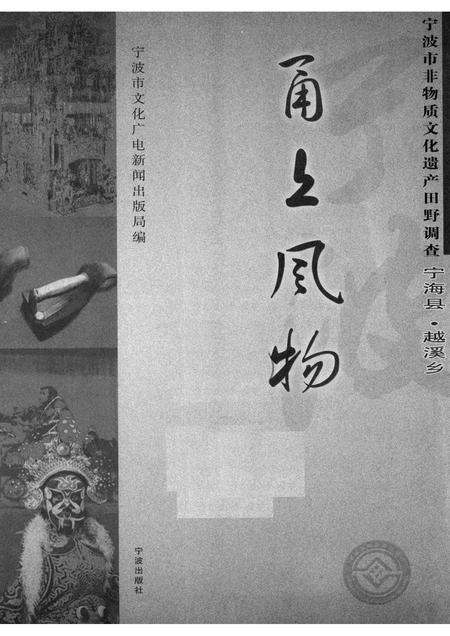 宁波市非物质文化遗产田野调查
宁海县·越溪乡
甬上风物
宁波市文化广电新闻出版局编
宁波出版社